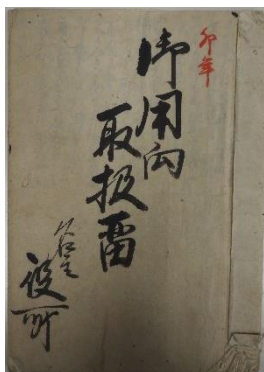 卯年
御用向
取扱留
役所